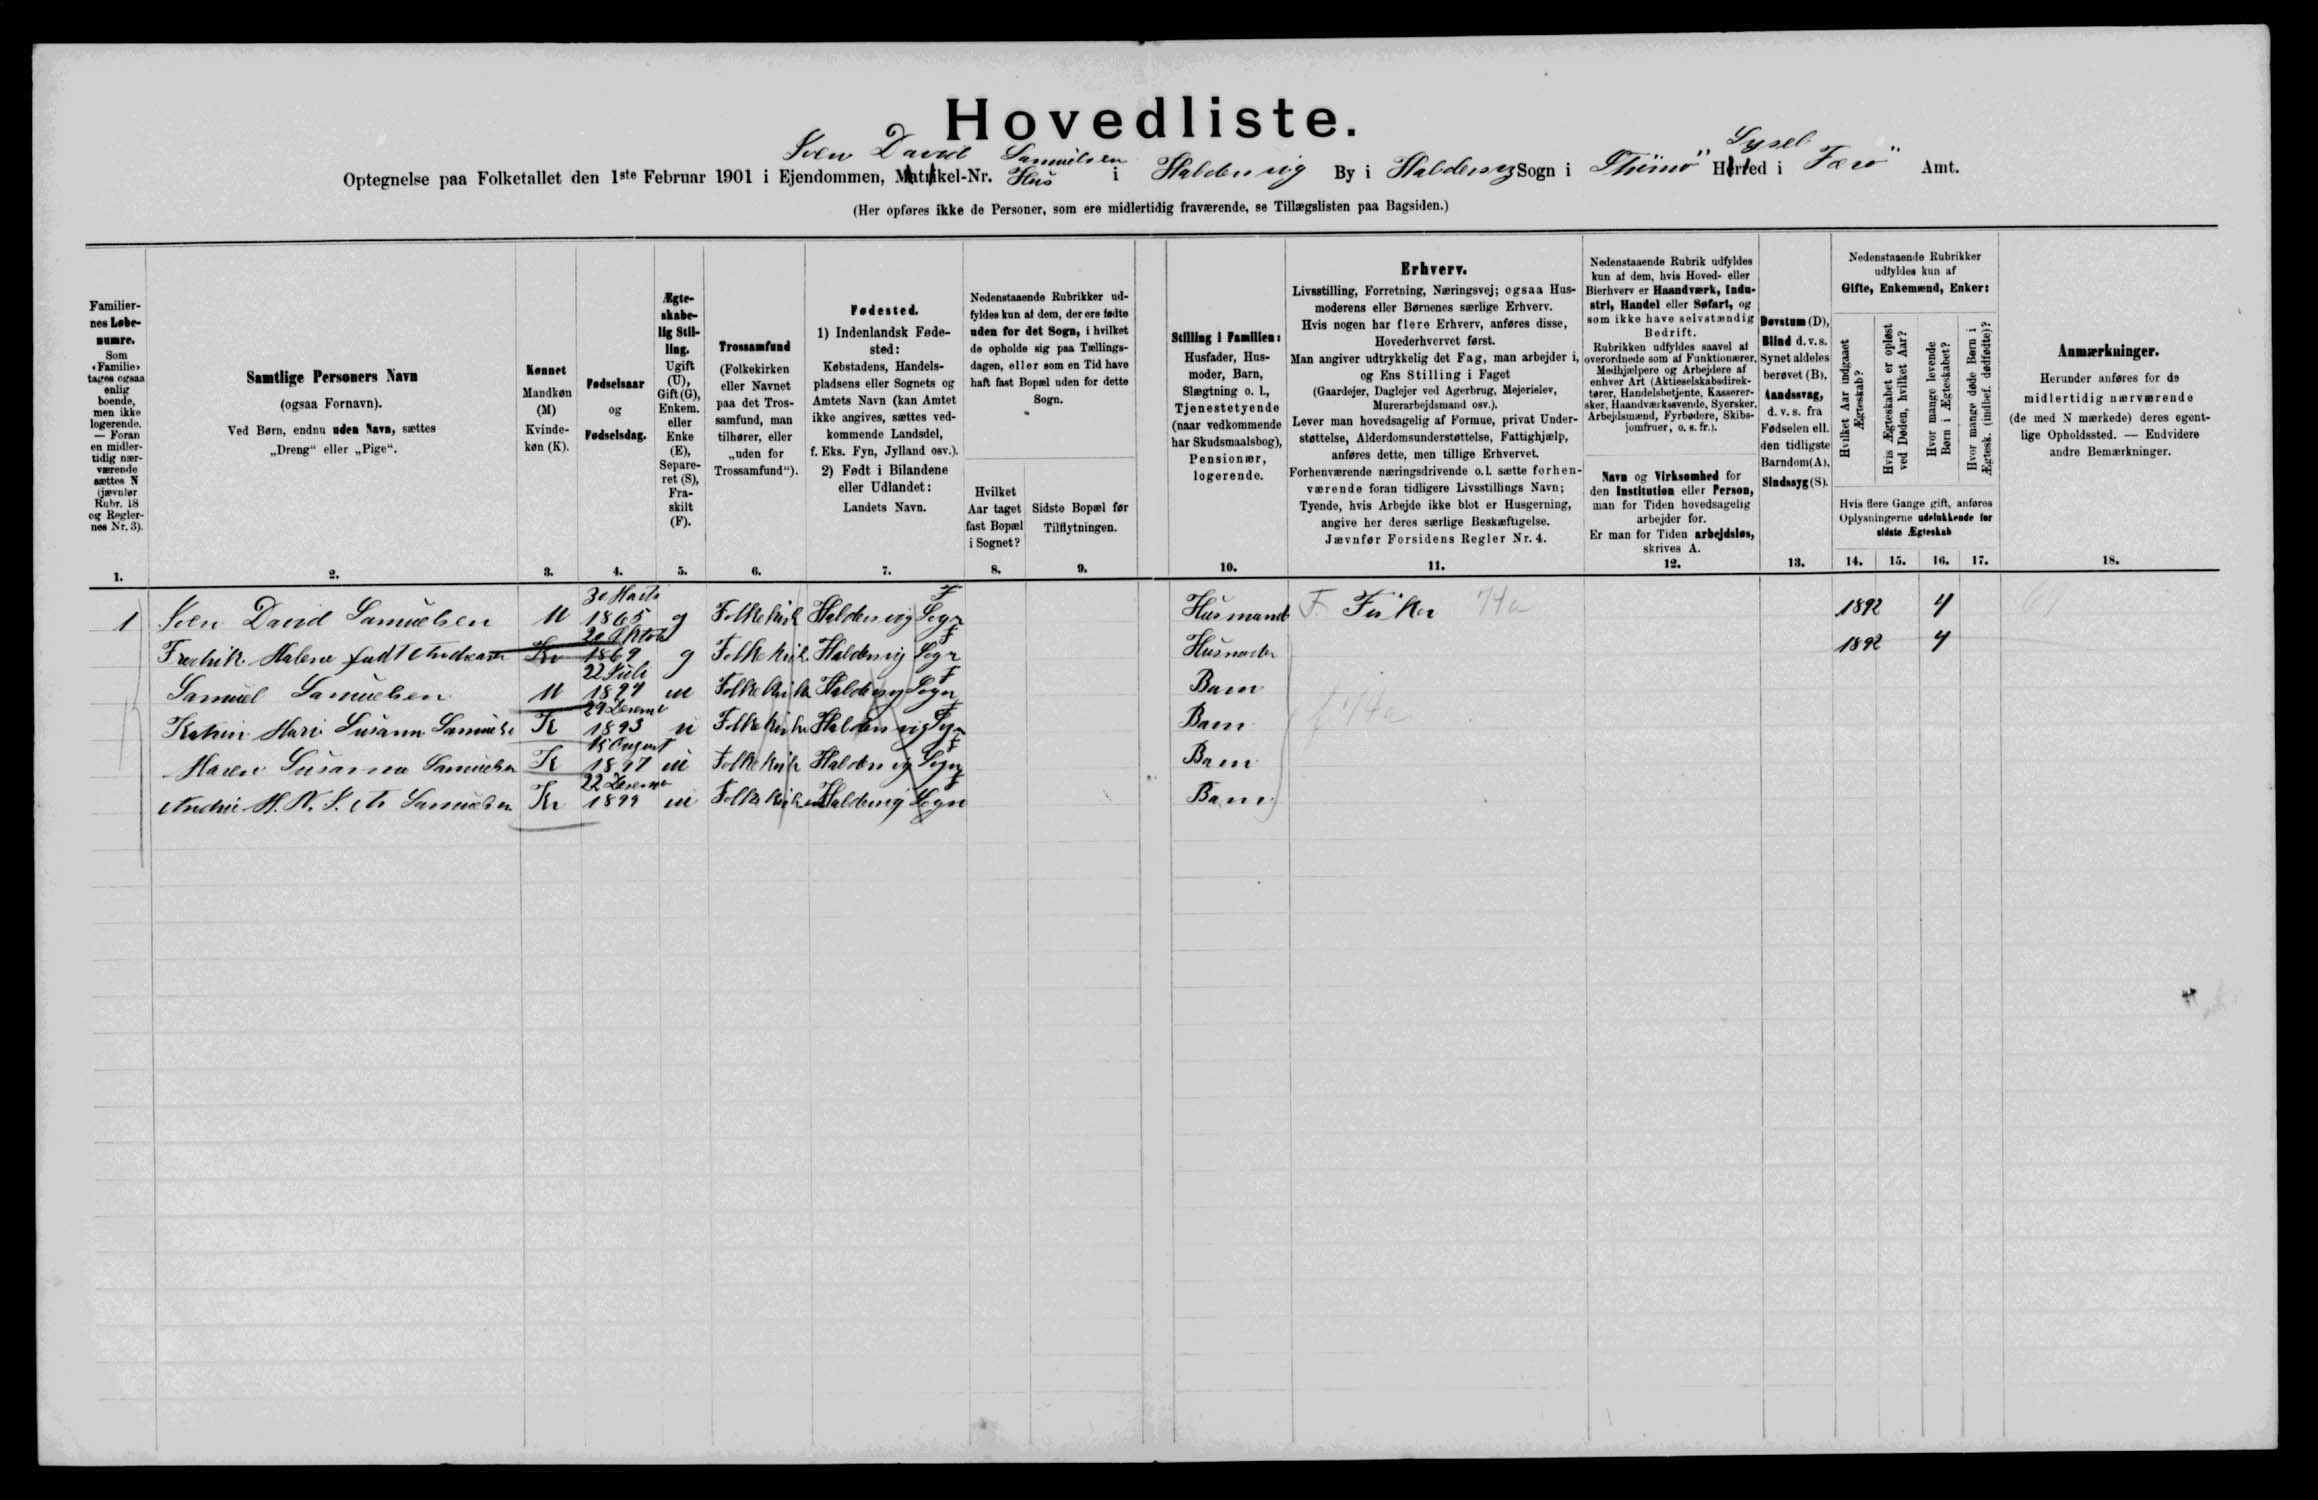 Hovedliste.
Sven David Samuelsen Sysel
Optegnelse paa Folketallet den 1ste Februar 1901 i Ejendommen, Matrikel-Nr. Hus i Haldersvig By i Haldersvig Sogn i Strømø Herred i Færø Amt.
(Her opføres ikke de Personer, som ere midlertidig fraværende, se Tillægslisten paa Bagsiden.)
Familiernes Løbenumre.
Som «Familie» tages ogsaa enlig boende, men ikke logerende. — Foran en midlertidig nærværende sættes N (jævnfør Rubr. 18 og Reglernes Nr. 3).
Samtlige Personers Navn
(ogsaa Fornavn).
Ved Børn, endnu uden Navn, sættes
„Dreng“ eller „Pige“.
Kønnet
Mandkøn (M)
Kvindekøn (K).
Fødselsaar
og
Fødselsdag.
Ægteskabelig Stilling.
Ugift (U), Gift (G), Enkem. eller Enke (E), Separeret (S), Fraskilt (F).
Trossamfund
(Folkekirken eller Navnet paa det Trossamfund, man tilhører, eller „uden for Trossamfund“).
Fødested.
1) Indenlandsk Fødested:
Købstadens, Handelspladsens eller Sognets og Amtets Navn (kan Amtet ikke angives, sættes vedkommende Landsdel, f. Eks. Fyn, Jylland osv.).
2) Født i Bilandene eller Udlandet:
Landets Navn.
Nedenstaaende Rubrikker udfyldes kun af dem, der ere fødte uden for det Sogn, i hvilket de opholde sig paa Tællingsdagen, eller som en Tid have haft fast Bopæl uden for dette Sogn.
Hvilket Aar taget fast Bopæl i Sognet?
Sidste Bopæl før Tilflytningen.
Stilling i Familien:
Husfader, Husmoder, Barn, Slægtning o. l., Tjenestetyende (naar vedkommende har Skudsmaalsbog), Pensionær, logerende.
Erhverv.
Livsstilling, Forretning, Næringsvej; ogsaa Husmoderens eller Børnenes særlige Erhverv.
Hvis nogen har flere Erhverv, anføres disse, Hovederhvervet først.
Man angiver udtrykkelig det Fag, man arbejder i, og Ens Stilling i Faget
(Gaardejer, Daglejer ved Agerbrug, Mejerielev, Murerarbejdsmand osv.).
Lever man hovedsagelig af Formue, privat Understøttelse, Alderdomsunderstøttelse, Fattighjælp, anføres dette, men tillige Erhvervet.
Forhenværende næringsdrivende o. l. sætte forhenværende foran tidligere Livsstillings Navn;
Tyende, hvis Arbejde ikke blot er Husgerning, angive her deres særlige Beskæftigelse.
Jævnfør Forsidens Regler Nr. 4.
Nedenstaaende Rubrik udfyldes kun af dem, hvis Hoved- eller Bierhverv er Haandværk, Industri, Handel eller Søfart, og som ikke have selvstændig Bedrift.
Rubrikken udfyldes saavel af overordnede som af Funktionærer, Medhjælpere og Arbejdere af enhver Art (Aktieselskabsdirektører, Handelsbetjente, Kasserersker, Haandværkssvende, Syersker, Arbejdsmænd, Fyrbødere, Skibsjomfruer, o. s. fr.).
Navn og Virksomhed for den Institution eller Person, man for Tiden hovedsagelig arbejder for.
Er man for Tiden arbejdsløs, skrives A.
Døvstum (D),
Blind d. v. s. Synet aldeles berøvet (B),
Aandssvag, d. v. s. fra Fødselen ell. den tidligste Barndom (A),
Sindssyg (S).
Nedenstaaende Rubrikker udfyldes kun af
Gifte, Enkemænd, Enker:
Hvilket Aar indgaaet Ægteskab?
Hvis Ægteskabet er opløst ved Døden, hvilket Aar?
Hvor mange levende Børn i Ægteskabet?
Hvor mange døde Børn i Ægtesk. (indbef. dødfødte)?
Hvis flere Gange gift, anføres Oplysningerne udelukkende for sidste Ægteskab
Anmærkninger.
Herunder anføres for de midlertidig nærværende (de med N mærkede) deres egentlige Opholdssted. — Endvidere andre Bemærkninger.
1. 2. 3. 4. 5. 6. 7. 8. 9. 10. 11. 12. 13. 14. 15. 16. 17. 18.
1 Sven David Samuelsen M 30 Marts 1865 g Folkekirk Haldersvig Sogn F Husmand F Fisker 74a 1892 4
Fredrik Malene født Andreasen Kv 20 Oktob 1869 g Folkekirk Haldersvig Sogn F Husmoder 1892 4
Samuel Samuelsen M 22 Juli 1894 u Folkekirke Haldersvig Sogn F Barn
Katrin Mari Susanna Samuelse K 29 Desemr 1893 u Folkekirke Haldersvig Sogn F Barn f 74a
Maren Susanna Samuelsen K 15 August 1897 u Folkekirk Haldersvig Sogn F Barn
Andrie M. K. S. A. Samuelsen Kv 22 Desemr 1899 u Folkekirken Haldersvig Sogn F Barn